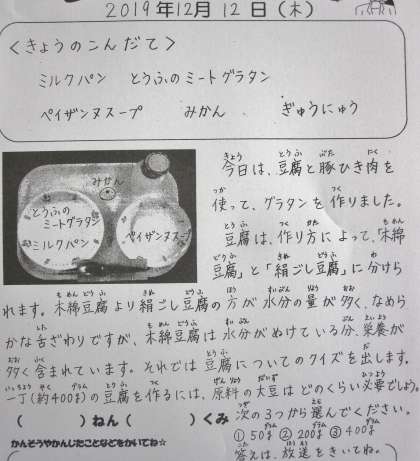 2019年12月12日（木）
＜きょうのこんだて＞
ミルクパン　とうふのミートグラタン
ペイザンヌスープ　みかん　ぎゅうにゅう
みかん
とうふの
ミートグラタン
ミルクパン
ペイザンヌスープ
今日は、豆腐と豚ひき肉を
使って、グラタンを作りました。
豆腐は、作り方によって、「木綿
豆腐」と「絹ごし豆腐」に分けら
れます。木綿豆腐より絹ごし豆腐の方が水分の量が多く、なめら
かな舌ざわりですが、木綿豆腐は水分がぬけている分、栄養が
多く含まれています。それでは豆腐についてのクイズを出します。
一丁（約400g）の豆腐を作るには、原料の大豆はどのくらい必要でしょう。
（　　　）ねん（　　　）くみ　次の3つから選んでください。
①50g ②200g ③400g
かんそうやかんじたことなどをかいてね☆
答えは、放送をきいてね。